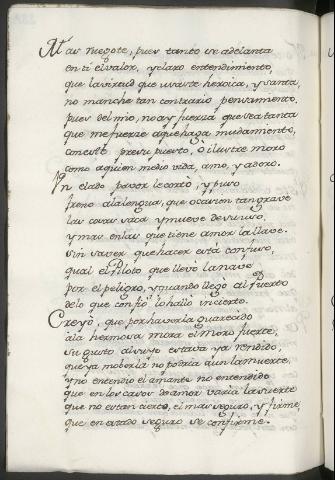 Mas ruegote, pues tanto se adelanta
en ti el valor, y claro entendimiento,
que la virtud que usaste heroica, y santa,
no manche tan contrario pensamiento,
pues del mio, no ay fuerza que sea tanta
que me fuerze a que haga mudamiento,
con este presupuesto, ò ilustre moro
como a quien medio vida, amo, y adoro.
Un elado pavor le cortò, y puso
freno ala lengua, que ocasion tan grave
las cosas saca y mueve de su uso,
y mas en las que tiene amor la llave.
sin saver que hacer està confuso,
qual el Piloto que llevò la nave
por el peligro, y quando llegò al puerto
de lo que confiò lo hallò incierto.
Creyò, que por haverla guarecido
à la hermosa mora el moro fuerte,
su gusto al suyo estava ya rendido
que ya moberla no podria aun la muerte,
y no entendio el amante no entendido
que en los casos de amor varia la suerte
que no estan cierto, el mas seguro, y firme,
que en estado seguro se confirme.